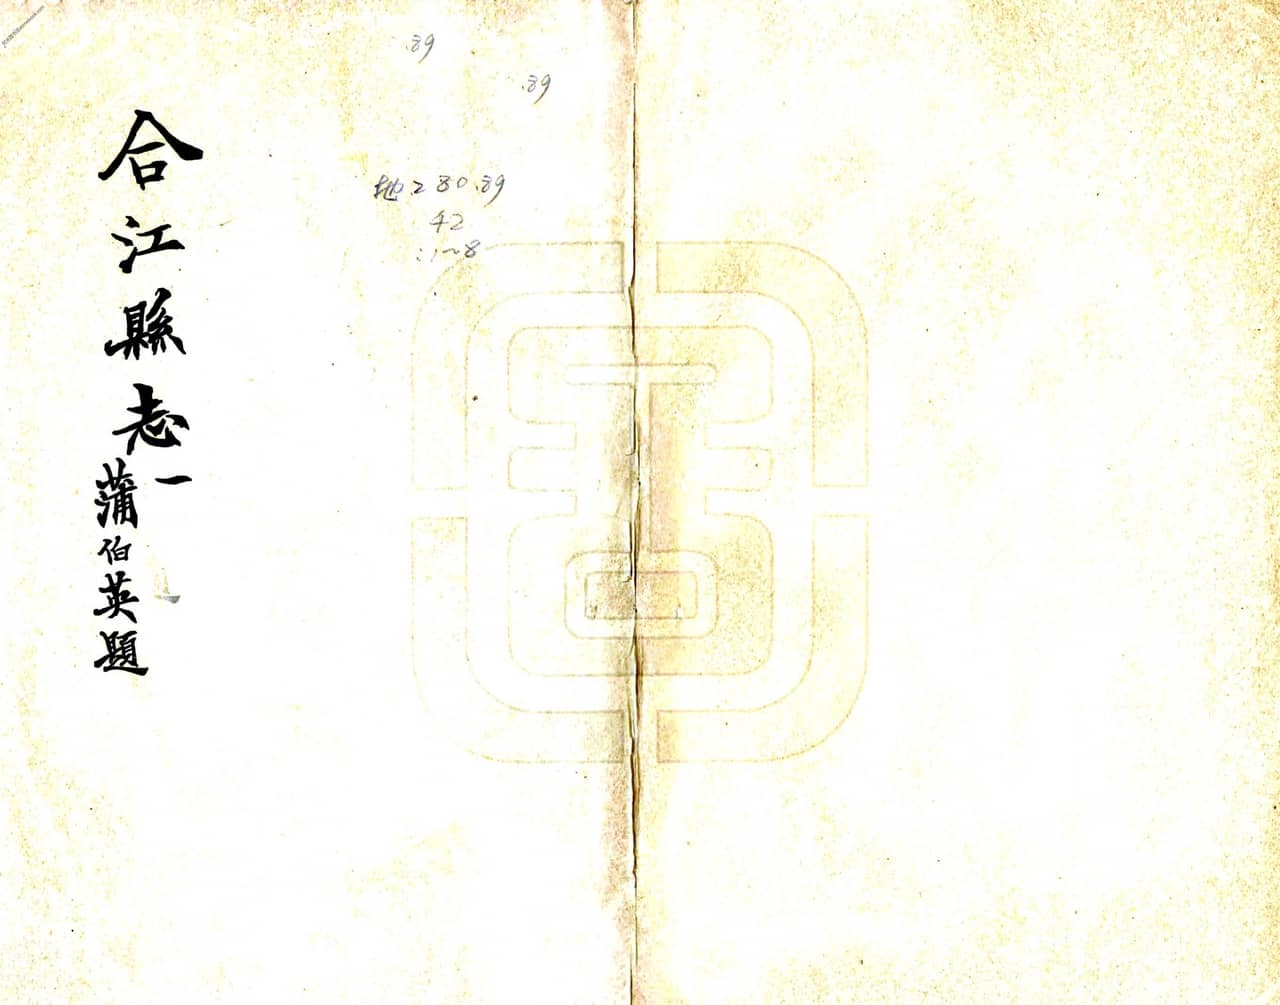 .89
.89
地280.89
42
:1~8
合江縣志
一
蒲伯英題